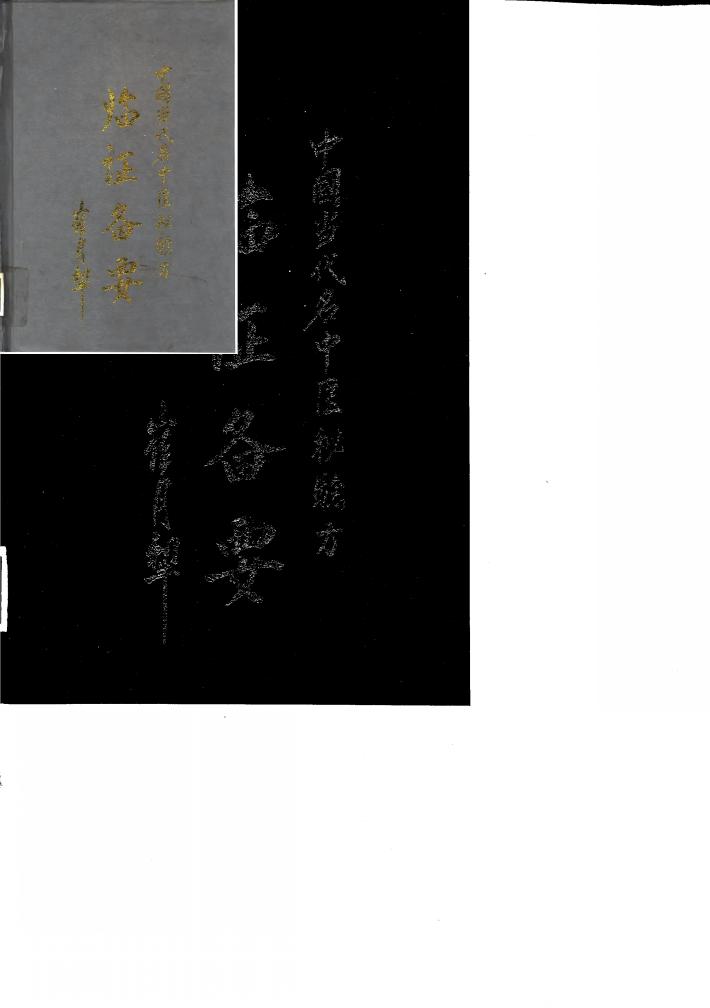 中國当代名中医秘验方
临证备要
崔月犁
中國当代名中医秘验方
临证备要
崔月犁